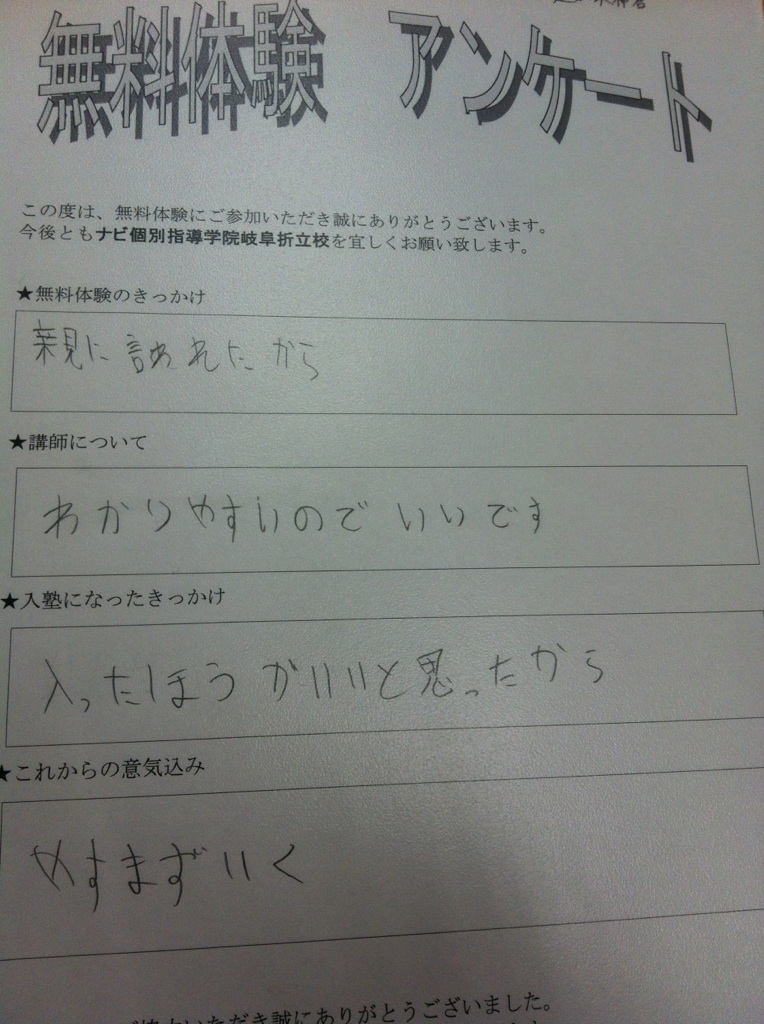 無料体験 アンケート
この度は、無料体験にご参加いただき誠にありがとうございます。
今後ともナビ個別指導学院岐阜折立校を宜しくお願い致します。
★無料体験のきっかけ
親に言われたから
★講師について
わかりやすいのでいいです
★入塾になったきっかけ
入ったほうがいいと思ったから
★これからの意気込み
やすまずいく
いただき誠にありがとうございました。